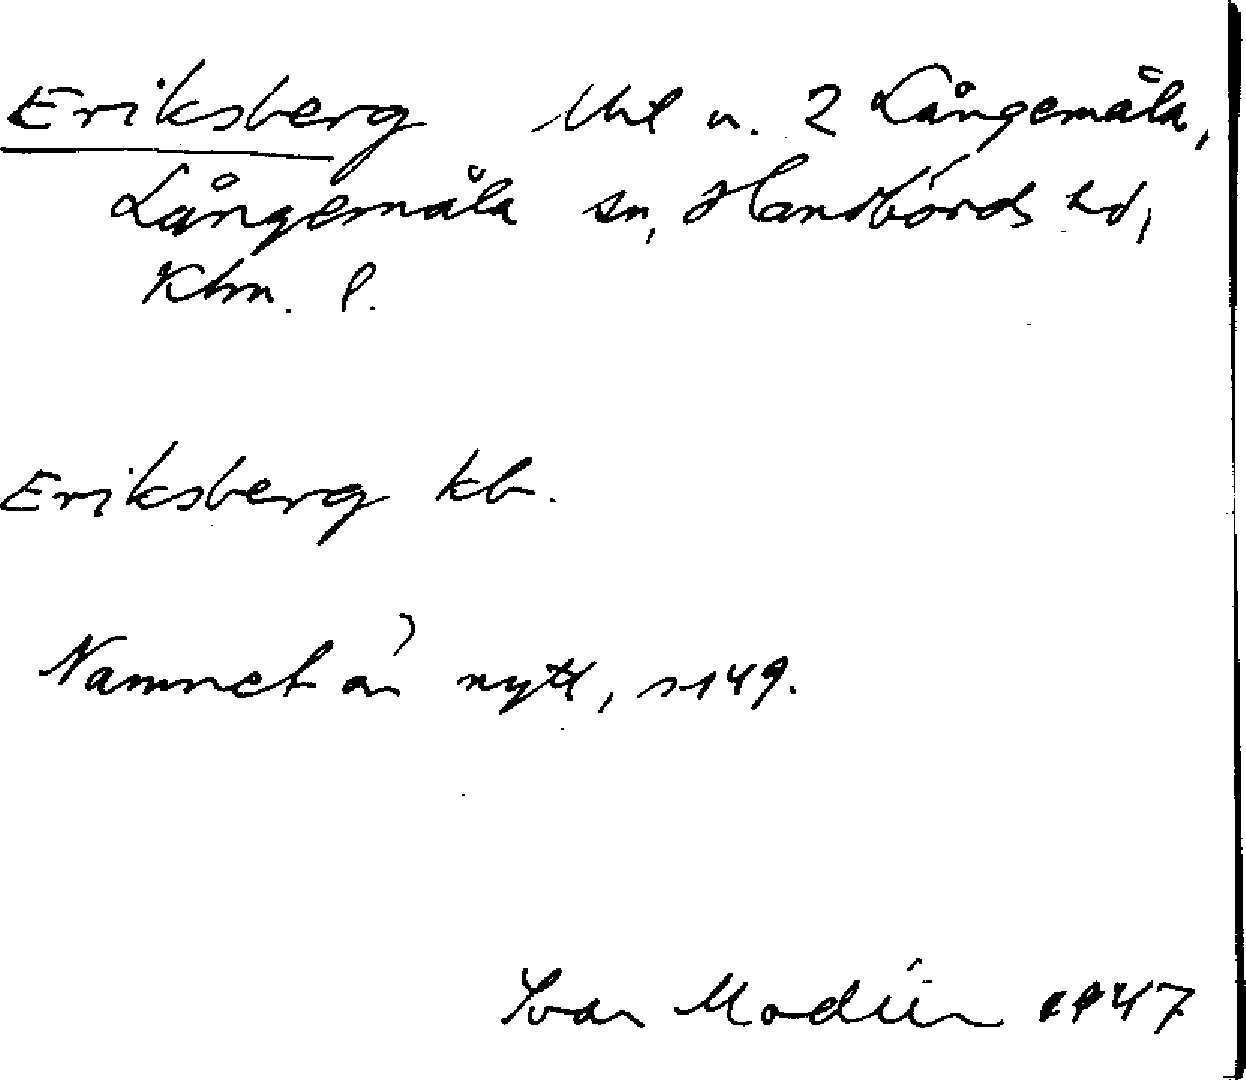 Eriksberg Uhl u. 2 Långemåla,
Långemåla sn, Handbörds hd,
Klm. l.
Eriksberg kb.
Namnet är nytt, s 149.
Ivar Modéer 1947